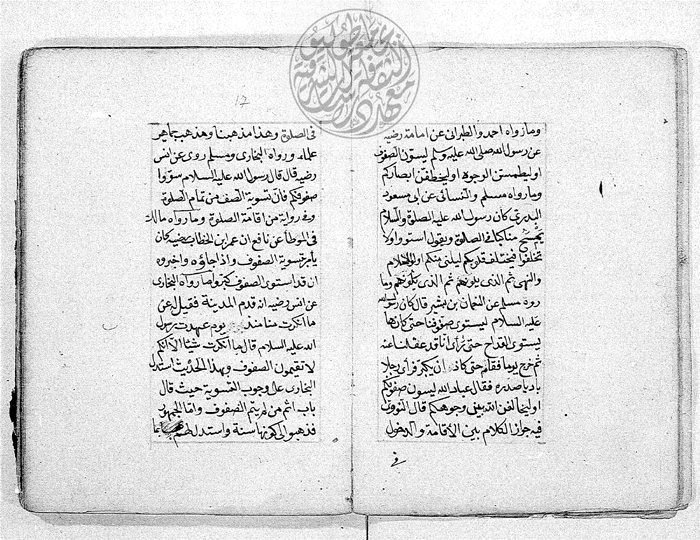 وما رواه احمد والطبراني عن امامة رضيه
عن رسول الله صلى الله عليه وسلم ليسون الصفوف
او ليطمسن الوجوه او ليخطفن ابصاركم
وما رواه مسلم والنسائى عن ابى مسعود
البدرى كان رسول الله عليه الصلوة والسلام
يمسح مناكبنا فى الصلوة ويقول استووا ولا
تختلفوا فيختلف قلوبكم ليلنى منكم اولوا الاحلام
والنهى ثم الذين يلونهم ثم الذين يلونهم وما
روه مسلم عن النعمان بن بشير قال كان رسول الله
عليه السلام ليسوى صفوفنا حتى كانما
يستوى القداح حتى راى انا قد عقلنا عنه
ثم خرج يوما فقام حتى كاد ان يكبر فراى رجلا
باديا صدره فقال عباد الله ليسون صفوفكم
او ليخالفن الله بين وجوهكم قال النووى
فيه جواز الكلام بين الاقامة والدخول
فى
١٢
فى الصلوة وهذا مذهبنا ومذهب جماهير
علماء ورواه البخارى ومسلم روى عن انس
رضيه قال قال رسول الله عليه السلام سووا
صفوفكم فان تسوية الصف من تمام الصلوة
وفى رواية من اقامة الصلوة وما رواه مالك
فى الموطأ عن نافع ان عمر ابن الخطاب رضيه كان
يأمر بتسوية الصفوف واذا جاؤه واخبروه
ان قد استوى الصفوف كبر ولما رواه البخارى
عن انس رضيه انه قدم المدينة فقيل عن
ما انكرت منا منذ يوم عهدت رسول
الله عليه السلام قال ما انكرت شيئا الا انكم
لا تقيمون الصفوف وبهذا الحديث استدل
البخارى على وجوب التسوية حيث قال
باب اثم من لم يتم الصفوف واما الجمهور
فذهبوا الى كونها سنة واستدلالهم بما